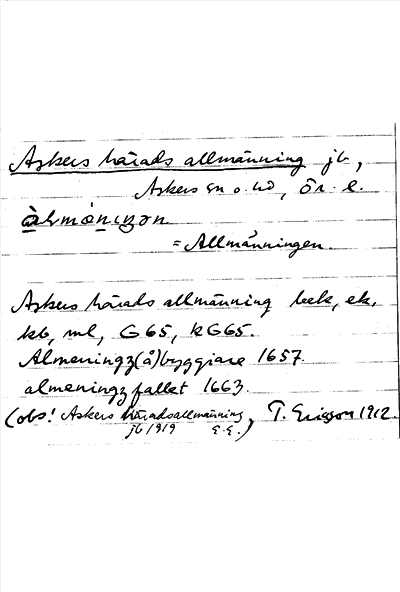 Askers härads allmänning jb,
Askers sn o. hd, Ör. l.
= Allmänningen.
Askers härads allmänning bek, ek,
kb, ml, G65, kG65.
Almeningz(å)byggiare 1657.
almeningz fallet 1663.
(obs! Askers häradsallmänning, T. Ericsson 1912.
jb 1919 E.E.)